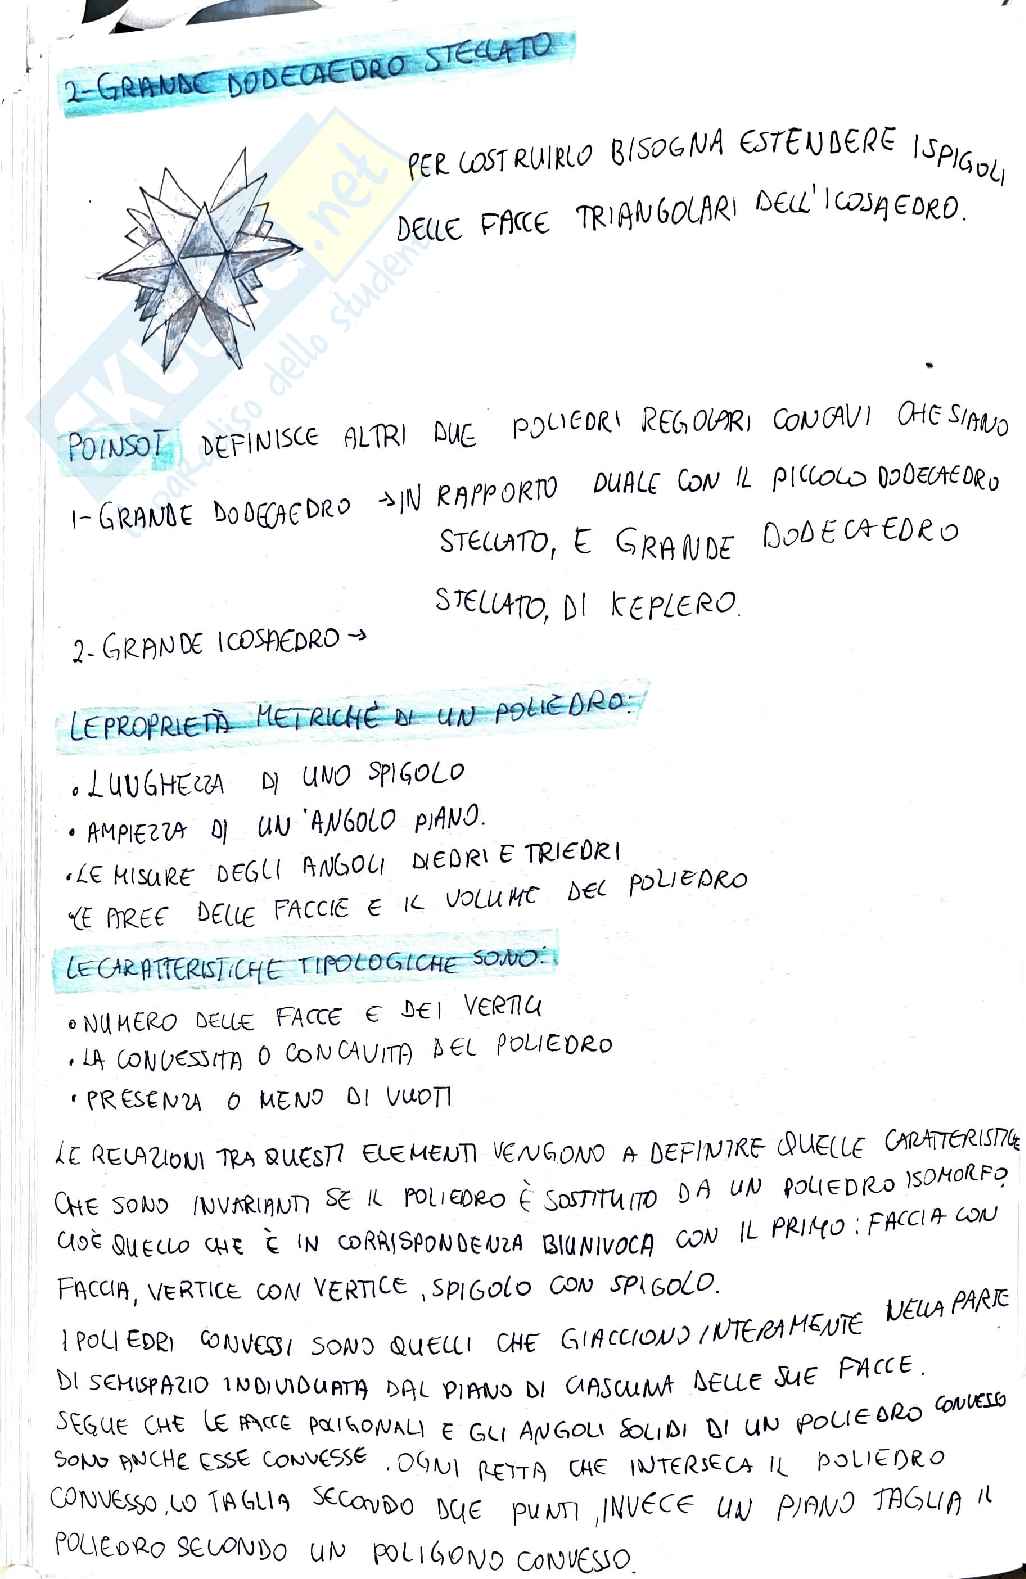 2-GRANDE DODECAEDRO STELLATO
PER COSTRUIRLO BISOGNA ESTENDERE I SPIGOLI
DELLE FACCE TRIANGOLARI DELL'ICOSAEDRO.
SKUOLA.net
il paradiso dello studente
POINSOT DEFINISCE ALTRI DUE POLIEDRI REGOLARI CONCAVI CHE SIANO
1-GRANDE DODECAEDRO → IN RAPPORTO DUALE CON IL PICCOLO DODECAEDRO
STELLATO, E GRANDE DODECAEDRO
STELLATO, DI KEPLERO.
2-GRANDE ICOSAEDRO →
LE PROPRIETÀ METRICHE DI UN POLIEDRO:
• LUNGHEZZA DI UNO SPIGOLO
• AMPIEZZA DI UN'ANGOLO PIANO.
• LE MISURE DEGLI ANGOLI DIEDRI E TRIEDRI
• LE AREE DELLE FACCIE E IL VOLUME DEL POLIEDRO
LE CARATTERISTICHE TIPOLOGICHE SONO:
• NUMERO DELLE FACCE E DEI VERTICI
• LA CONVESSITÀ O CONCAVITÀ DEL POLIEDRO
• PRESENZA O MENO DI VUOTI
LE RELAZIONI TRA QUESTI ELEMENTI VENGONO A DEFINIRE QUELLE CARATTERISTICHE
CHE SONO INVARIANTI SE IL POLIEDRO È SOSTITUITO DA UN POLIEDRO ISOMORFO,
CIOÈ QUELLO CHE È IN CORRISPONDENZA BIUNIVOCA CON IL PRIMO: FACCIA CON
FACCIA, VERTICE CON VERTICE, SPIGOLO CON SPIGOLO.
I POLIEDRI CONVESSI SONO QUELLI CHE GIACCIONO INTERAMENTE NELLA PARTE
DI SEMISPAZIO INDIVIDUATA DAL PIANO DI CIASCUNA DELLE SUE FACCE.
SEGUE CHE LE FACCE POLIGONALI E GLI ANGOLI SOLIDI DI UN POLIEDRO CONVESSO
SONO ANCHE ESSE CONVESSE. OGNI RETTA CHE INTERSECA IL POLIEDRO
CONVESSO, LO TAGLIA SECONDO DUE PUNTI, INVECE UN PIANO TAGLIA IL
POLIEDRO SECONDO UN POLIGONO CONVESSO.